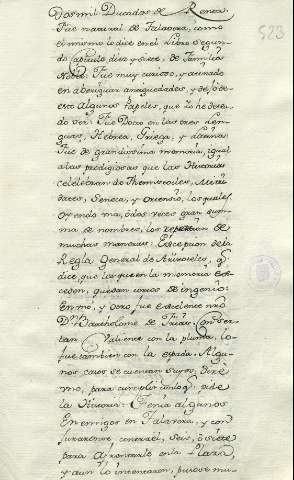 Dos mil Ducados de Renta
523
Fue natural de Talavera, como
el mismo lo dice en el Libro segun
do capitulo diez y siete, de Familias
Fue muy curioso, y acertado
en averiguar antiguedades, y dejo de
esto algunos papeles, que Yo he desea
do ver: Fue Docto en las tres Len
guas, Hebrea, Griega, y Latina
Fue de grandissima memoria, igual
a las prodigiosas que las Historias
celebran de Themistocles, Mitri
dates, Seneca, y los quales
oyendo mas, dos veces gran num
ma de nombres, los repetian de
muchas maneras: Excepcion de la
Regla General de Aristoteles, q
dice, que los que en la memoria ex
ceden, quedan cortos de ingenio:
En uno, y otro fue excelente nro
Dn. Bartholome de Frias. Con ser
tan Valiente con la pluma, lo
fue tambien con la espada. Algu
nos casos se cuentan suyos. Dire
uno, para cumplir con lo q pide
la Historia: Tenia algunos
Enemigos en Talavera, y con
juraronse contra el, seis, o siete
para afrontarlo en la Plaza,
y aun lo intentaron, pusose mu